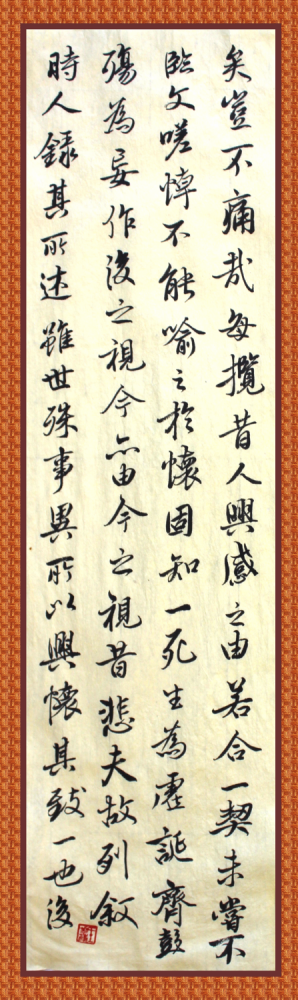 矣豈不痛哉每攬昔人興感之由若合一契未嘗不
臨文嗟悼不能喻之於懷固知一死生為虛誕齊彭
殤為妄作後之視今亦由今之視昔悲夫故列敘
時人錄其所述雖世殊事異所以興懷其致一也後